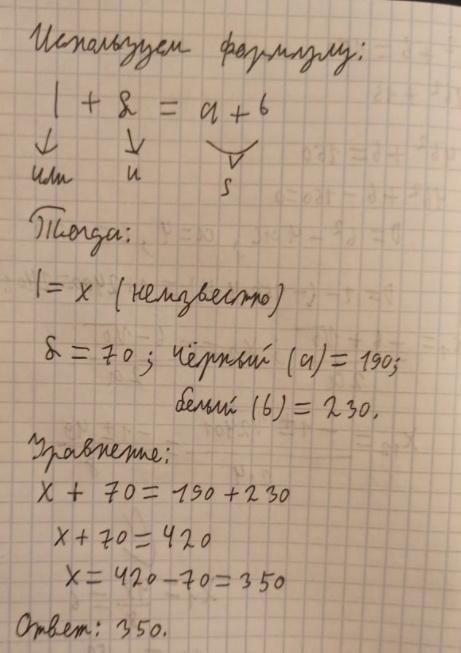 Используем формулу:
| + & = a + b
↓ ↓
или и S
Тогда:
| = x (неизвестно)
& = 70; чёрный (a) = 190;
белый (b) = 230.
Уравнение:
x + 70 = 190 + 230
x + 70 = 420
x = 420 - 70 = 350
Ответ: 350.